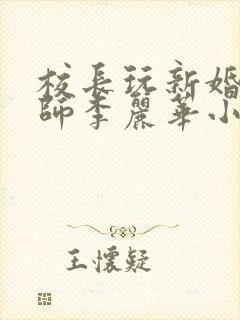 校長玩新婚
師李麗華小
王懷疑